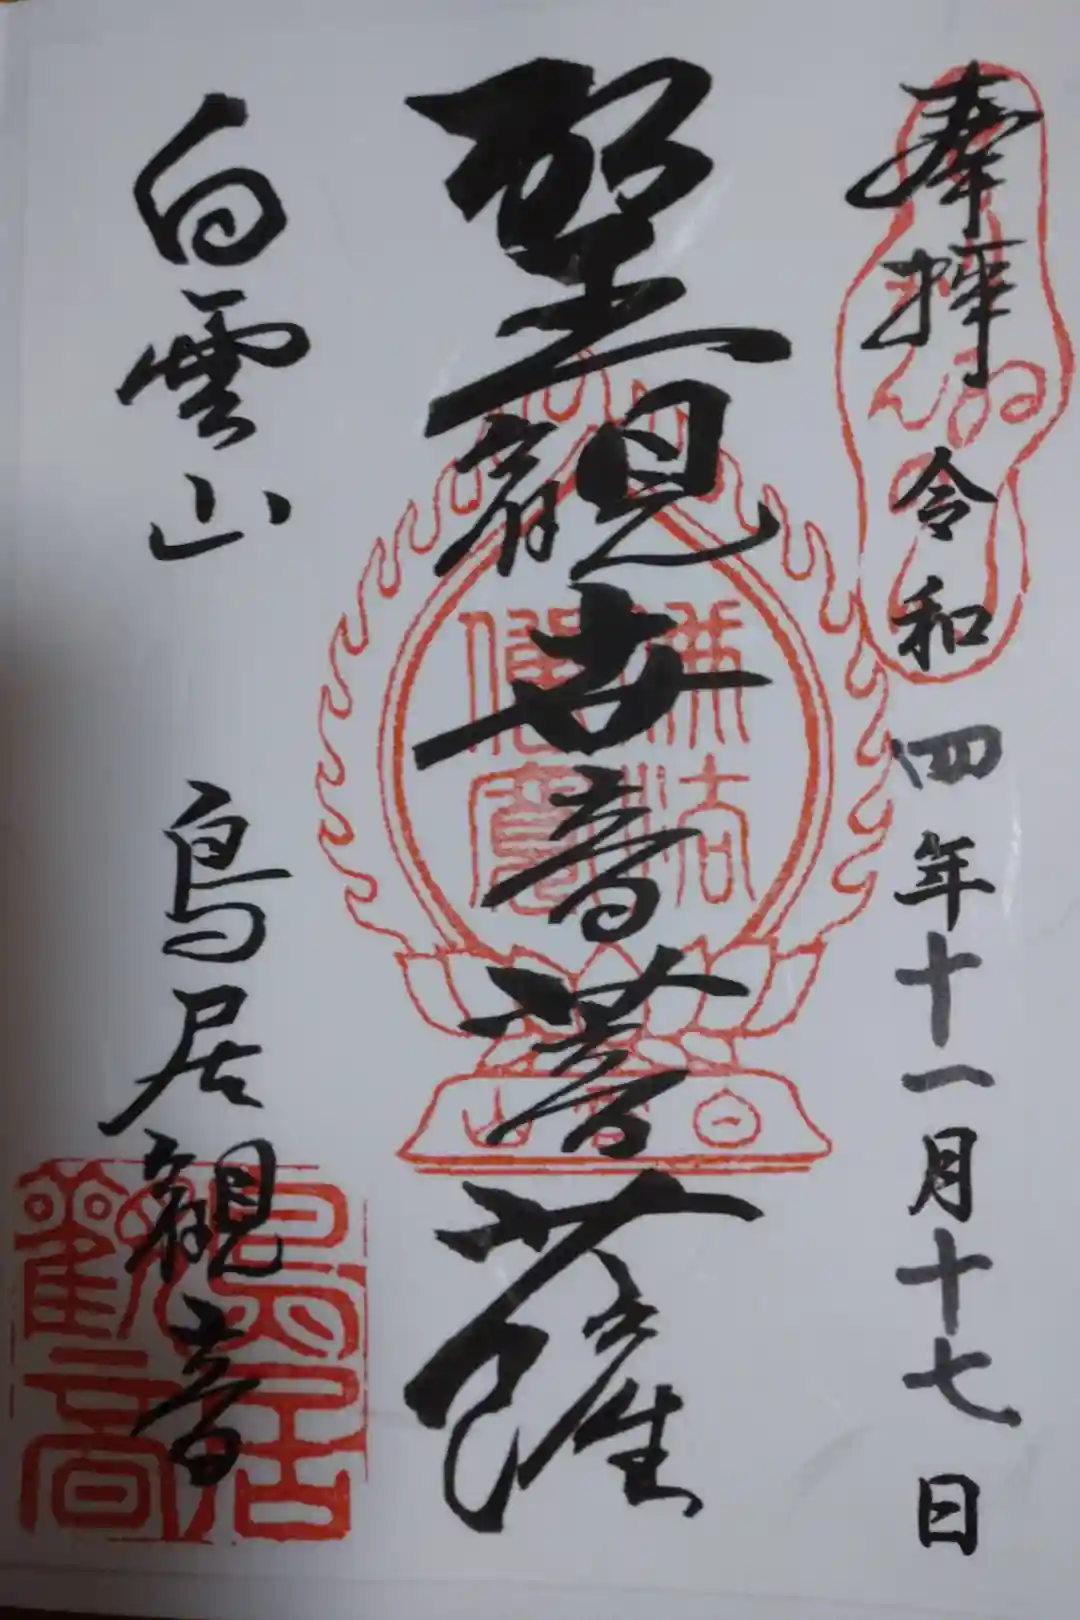 奉拝 令和四年十一月十七日
聖観世音菩薩
白雲山 鳥居観音
佛法僧寳
鳥居觀音